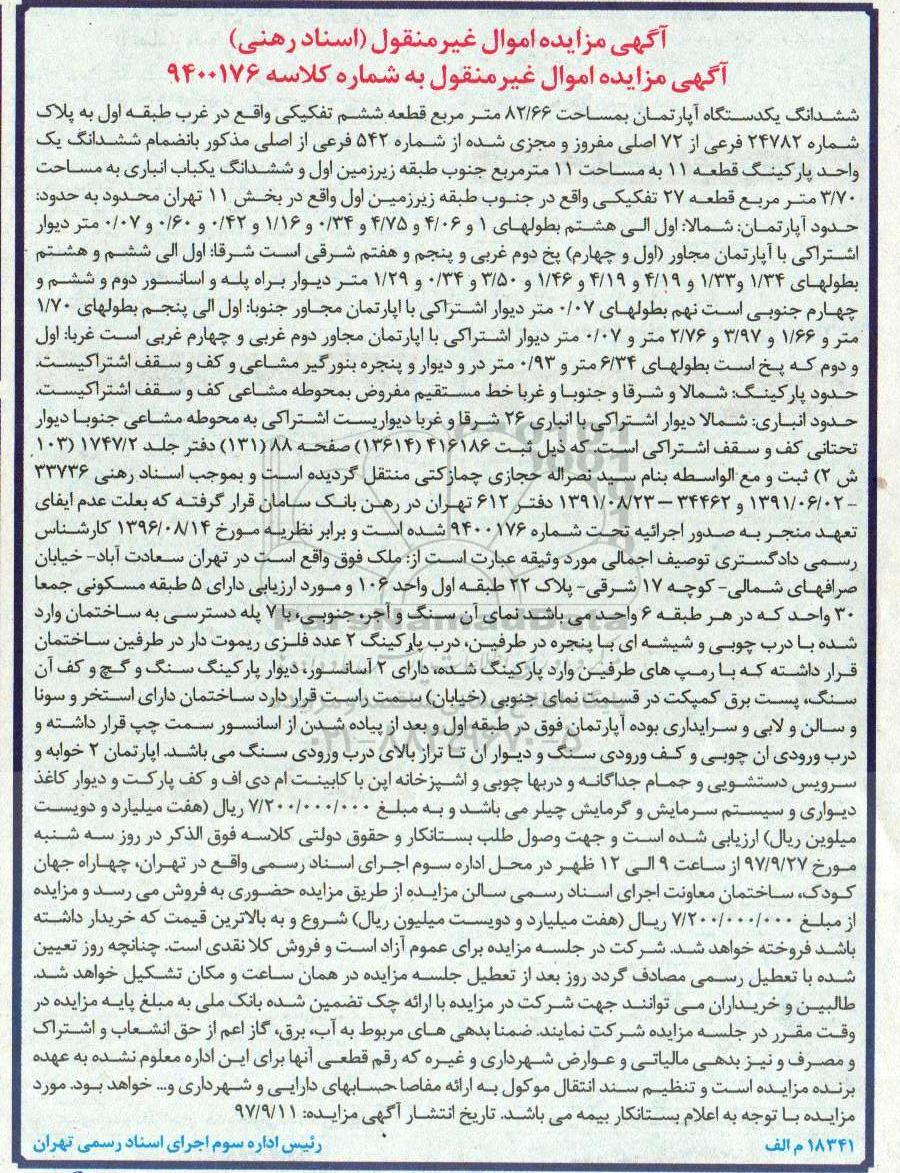 آگهی مزایده اموال غیرمنقول (اسناد رهنی)
آگهی مزایده اموال غیرمنقول به شماره کلاسه ۹۴۰۰۱۷۶
ششدانگ یکدستگاه آپارتمان بمساحت ۸۲/۶۶ متر مربع قطعه ششم تفکیکی واقع در غرب طبقه اول به پلاک
شماره ۲۴۷۸۲ فرعی از ۷۲ اصلی مفروز و مجزی شده از شماره ۵۴۲ فرعی از اصلی مذکور بانضمام ششدانگ یک
واحد پارکینگ قطعه ۱۱ به مساحت ۱۱ مترمربع جنوب طبقه زیرزمین اول و ششدانگ یکباب انباری به مساحت
۳/۷۰ متر مربع قطعه ۲۷ تفکیکی واقع در جنوب طبقه زیرزمین اول واقع در بخش ۱۱ تهران محدود به حدود:
حدود آپارتمان: شمالا: اول الی هشتم بطولهای ۱ و ۴/۰۶ و ۴/۷۵ و ۰/۳۴ و ۱/۱۶ و ۰/۴۲ و ۰/۶۰ و ۰/۰۷ متر دیوار
اشتراکی با آپارتمان مجاور (اول و چهارم) پخ دوم غربی و پنجم و هفتم شرقی است شرقا: اول الی ششم و هشتم
بطولهای ۱/۳۴ و۱/۳۳ و ۴/۱۹ و ۴/۱۹ و ۱/۴۶ و ۳/۵۰ و ۰/۳۴ و ۱/۲۹ متر دیوار براه پله و اسانسور دوم و ششم و
چهارم جنوبی است نهم بطولهای ۰/۰۷ متر دیوار اشتراکی با اپارتمان مجاور جنوبا: اول الی پنجم بطولهای ۱/۷۰
متر و ۱/۶۶ و ۳/۹۷ و ۲/۷۶ متر و ۰/۰۷ متر دیوار اشتراکی با اپارتمان مجاور دوم غربی و چهارم غربی است غربا: اول
و دوم که پخ است بطولهای ۶/۳۴ متر و ۰/۹۳ متر در و دیوار و پنجره بنورگیر مشاعی و کف و سقف اشتراکیست.
حدود پارکینگ: شمالا و شرقا و جنوبا و غربا خط مستقیم مفروض بمحوطه مشاعی کف و سقف اشتراکیست.
حدود انباری: شمالا دیوار اشتراکی با انباری ۲۶ شرقا و غربا دیواریست اشتراکی به محوطه مشاعی جنوبا دیوار
تحتانی کف و سقف اشتراکی است که ذیل ثبت ۴۱۶۱۸۶ (۱۳۶۱۴) صفحه ۸۸ (۱۳۱) دفتر جلد ۱۷۴۷/۲ (۱۰۳
ش ۲) ثبت و مع الواسطه بنام سید نصراله حجازی چمازکتی منتقل گردیده است و بموجب اسناد رهنی ۳۳۷۳۶
- ۱۳۹۱/۰۶/۰۲ و ۳۴۴۶۲ – ۱۳۹۱/۰۸/۲۳ دفتر ۶۱۲ تهران در رهن بانک سامان قرار گرفته که بعلت عدم ایفای
تعهد منجر به صدور اجرائیه تحت شماره ۹۴۰۰۱۷۶ شده است و برابر نظریه مورخ ۱۳۹۶/۰۸/۱۴ کارشناس
رسمی دادگستری توصیف اجمالی مورد وثیقه عبارت است از: ملک فوق واقع است در تهران سعادت آباد- خیابان
صرافهای شمالی- کوچه ۱۷ شرقی- پلاک ۲۲ طبقه اول واحد ۱۰۶ و مورد ارزیابی دارای ۵ طبقه مسکونی جمعا
۳۰ واحد که در هر طبقه ۶ واحد می باشد. نمای آن سنگ و آجر جنوبی، با ۷ پله دسترسی به ساختمان وارد
شده با درب چوبی و شیشه ای با پنجره در طرفین، درب پارکینگ ۲ عدد فلزی ریموت دار در طرفین ساختمان
قرار داشته که با رمپ های طرفین وارد پارکینگ شده، دارای ۲ آسانسور، دیوار پارکینگ سنگ و گچ و کف آن
سنگ، پست برق کمپکت در قسمت نمای جنوبی (خیابان) سمت راست قرار دارد ساختمان دارای استخر و سونا
و سالن و لابی و سرایداری بوده آپارتمان فوق در طبقه اول و بعد از پیاده شدن از اسانسور سمت چپ قرار داشته و
درب ورودی ان چوبی و کف ورودی سنگ و دیوار ان تا تراز بالای درب ورودی سنگ می باشد. اپارتمان ۲ خوابه و
سرویس دستشویی و حمام جداگانه و دربها چوبی و اشپزخانه اپن با کابینت ام دی اف و کف پارکت و دیوار کاغذ
دیواری و سیستم سرمایش و گرمایش چیلر می باشد و به مبلغ ۷/۲۰۰/۰۰۰/۰۰۰ ریال (هفت میلیارد و دویست
میلوین ریال) ارزیابی شده است و جهت وصول طلب بستانکار و حقوق دولتی کلاسه فوق الذکر در روز سه شنبه
مورخ ۹۷/۹/۲۷ از ساعت ۹ الی ۱۲ ظهر در محل اداره سوم اجرای اسناد رسمی واقع در تهران، چهاراه جهان
کودک، ساختمان معاونت اجرای اسناد رسمی سالن مزایده از طریق مزایده حضوری به فروش می رسد و مزایده
از مبلغ ۷/۲۰۰/۰۰۰/۰۰۰ ریال (هفت میلیارد و دویست میلیون ریال) شروع و به بالاترین قیمت که خریدار داشته
باشد فروخته خواهد شد. شرکت در جلسه مزایده برای عموم آزاد است و فروش کلا نقدی است. چنانچه روز تعیین
شده با تعطیل رسمی مصادف گردد روز بعد از تعطیل جلسه مزایده در همان ساعت و مکان تشکیل خواهد شد.
طالبین و خریداران می توانند جهت شرکت در مزایده با ارائه چک تضمین شده بانک ملی به مبلغ پایه مزایده در
وقت مقرر در جلسه مزایده شرکت نمایند. ضمنا بدهی های مربوط به آب، برق، گاز اعم از حق انشعاب و اشتراک
و مصرف و نیز بدهی مالیاتی و عوارض شهرداری و غیره که رقم قطعی آنها برای این اداره معلوم نشده به عهده
برنده مزایده است و تنظیم سند انتقال موکول به ارائه مفاصا حسابهای دارایی و شهرداری و... خواهد بود. مورد
مزایده با توجه به اعلام بستانکار بیمه می باشد. تاریخ انتشار آگهی مزایده: ۹۷/۹/۱۱
۱۸۳۴۱ م الف
رئیس اداره سوم اجرای اسناد رسمی تهران